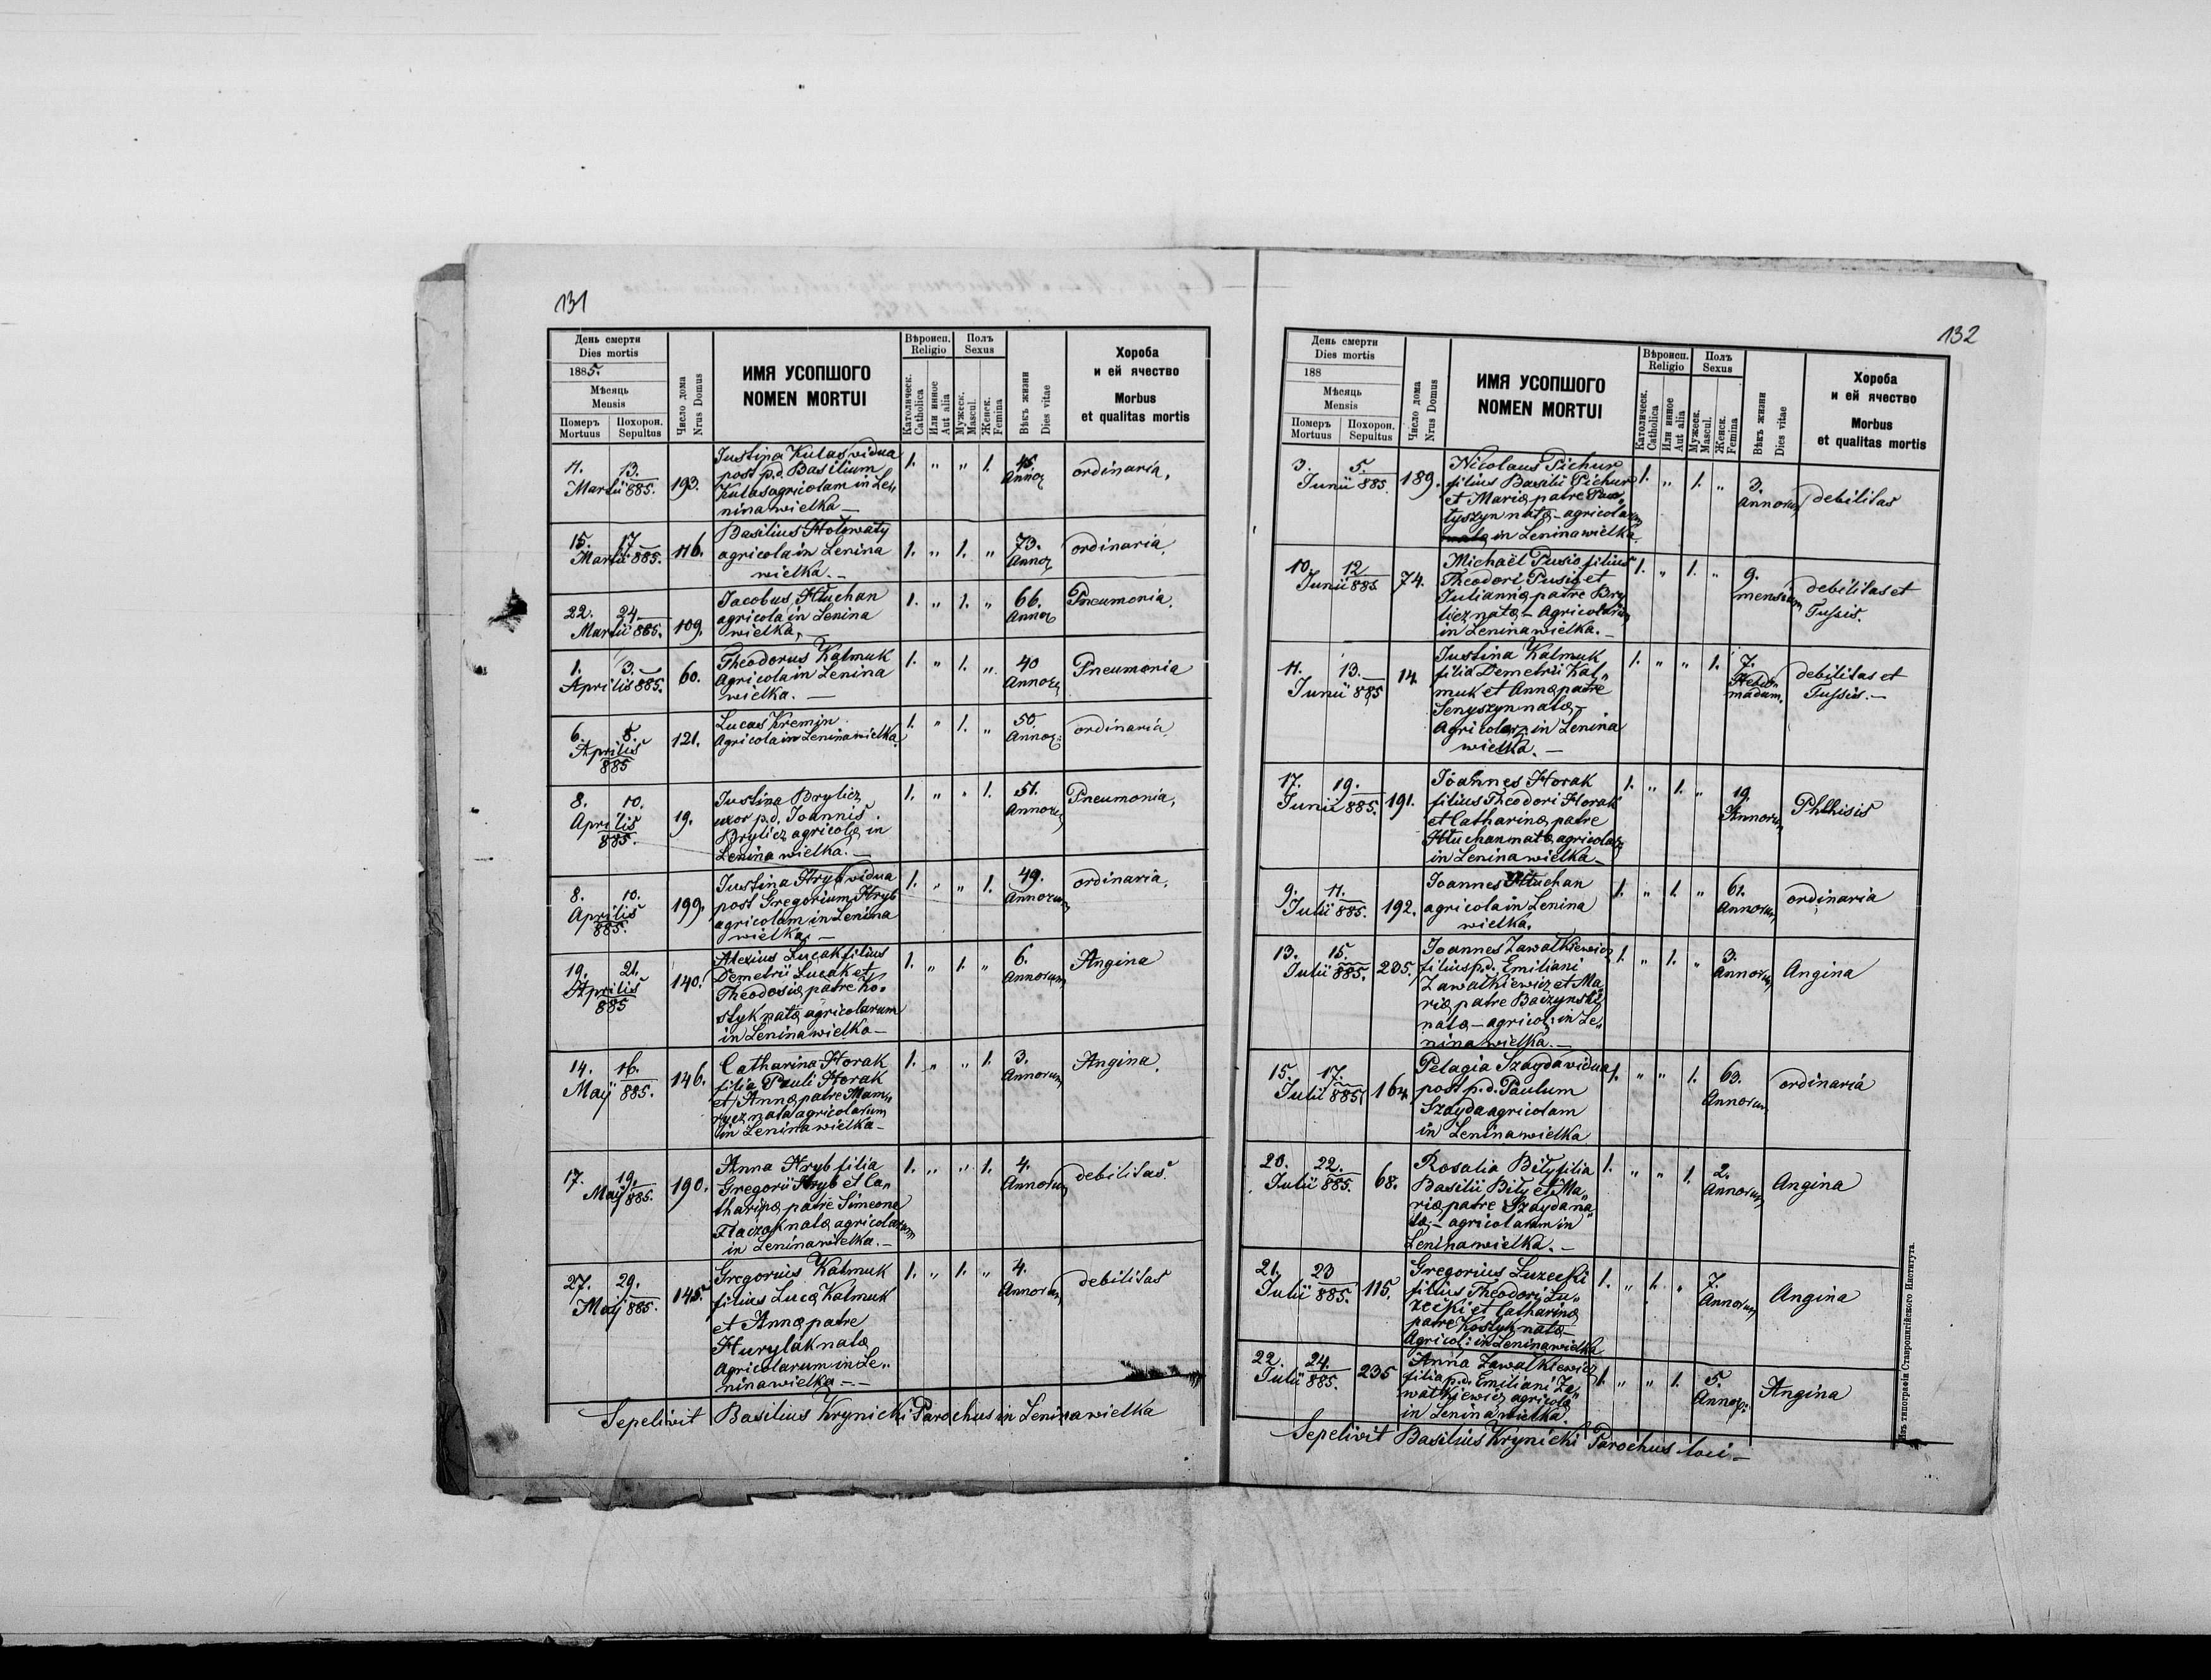 131
День смерти
Dies mortis
1885.
Мѣсяць
Mensis
Померъ
Mortuus
Похорон.
Sepultus
Число дома
Nrus Domus
ИМЯ УСОПШОГО
NOMEN MORTUI
Вѣроисп.
Religio
Католическ.
Catholica
Или инное
Aut alia
Полъ
Sexus
Мужеск.
Mascul.
Женск.
Femina
Вѣкъ жизни
Dies vitae
Хороба
и ей ячество
Morbus
et qualitas mortis
11. 13.
Martii 885. 193.
Justina Kulas vidua
post p.d. Basilium
Kulas agricolam in Le„
nina wielka —
1. „ „ 1. 45. Annor ordinaria.
15. 17
Martii 885. 116.
Basilius Hołowaty
agricola in Lenina
wielka. —
1. „ 1. „ 73. Annor ordinaria.
22. 24
Martii 885. 109.
Jacobus Hłuchan
agricola in Lenina
wielka, —
1. „ 1. „ 66. Annor Pneumonia.
1. 3.
Aprilis 885. 60.
Theodorus Kałmuk
Agricola in Lenina
wielka. —
1. „ 1. „ 40 Annor Pneumonia
6. 8.
Aprilis
885 121.
Lucas Kremin
Agricola in Lenina wielka.
1. „ 1. „ 50. Annor: ordinaria.
8. 10.
Aprilis
885. 19.
Justina Brylicz
uxor p.d. Joannis
Brylicz agricolæ in
Lenina wielka. —
1. „ „ 1. 51. Annor Pneumonia,
8. 10.
Aprilis
885. 199.
Justina Hryb vidua
post Gregorium Hryb
agricolam in Lenina
wielka. —
1. „ „ 1. 49. Annorum ordinaria.
19. 21.
Aprilis
885 140.
Alexius Lucak filius
Demetrii Lucak et
Theodosiæ patre Ko„
styk natæ agricolarum
in Lenina wielka —
1. „ 1. „ 6. Annorum Angina
14. 16.
Maij 885. 146.
Catharina Horak
filia Pauli Horak
et Annæ patre Mam„
rycz nata agricolarum
in Lenina wielka —
1. „ „ 1. 3. Annorum Angina.
17. 19.
Maij 885. 190.
Anna Hryb filia
Gregorii Hryb et Ca„
tharinæ patre Simeone
Tkaczak natæ agricolarum
in Lenina wielka. —
1. „ „ 1. 4. Annorum debilitas.
27. 29.
Maij 885. 145.
Gregorius Kałmuk
filius Lucæ Kałmuk
et Annæ patre
Hurylak natæ
Agricolarum in Le„
nina wielka —
1. „ 1. „ 4. Annorum debilitas
Sepelivit Basilius Krynicki Parochus in Lenina wielka
132
День смерти
Dies mortis
188
Мѣсяць
Mensis
Померъ
Mortuus
Похорон.
Sepultus
Число дома
Nrus Domus
ИМЯ УСОПШОГО
NOMEN MORTUI
Вѣроисп.
Religio
Католическ.
Catholica
Или инное
Aut alia
Полъ
Sexus
Мужеск.
Mascul.
Женск.
Femina
Вѣкъ жизни
Dies vitae
Хороба
и ей ячество
Morbus
et qualitas mortis
3. 5.
Junii 885. 189.
Nicolaus Pichur
filius Basilii Pichur
et Mariæ patre
tyszyn natæ — agricolarum
in Lenina wielka.
1. „ 1. „ 3. Annorum debilitas
10. 12
Junii 885 74.
Michaël Pusio filius
Theodori Pusio et
Juliannæ patre Bry
licz natæ — Agricolarum
in Lenina wielka. —
1. „ 1. „ 9. mensium debilitas et
Tussis.
11. 13.
Junii 885 14.
Justina Kałmuk
filia Demetrii Kał„
muk et Annæ patre
Senyszyn natæ
Agricolar. in Lenina
wielka. —
1. „ „ 1. 7. Hebdo„
madum. debilitas et
Tussis. —
17. 19.
Junii 885. 191.
Joannes Horak
filius Theodori Horak
et Catharinæ patre
Hłuchan natæ agricolar
in Lenina wielka —
1. „ 1. „ 19. Annorum Phthisis
9. 11.
Julii 885. 192.
Joannes Hłuchan
agricola in Lenina
wielka.
1. „ 1. „ 61. Annorum ordinaria
13. 15.
Julii 885. 235.
Joannes Zawałkiewicz
filius p.d. Emiliani
Zawałkiewicz et Ma„
riæ patre Baczynski
natæ — agricol: in Le„
nina wielka. —
1. „ 1. „ 3. Annorum Angina
15. 17.
Julii 885. 164.
Pelagia Szayda vidua
post p.d. Paulum
Szayda agricolam
in Lenina wielka
1. „ „ 1. 63. Annorum ordinaria
20. 22.
Julii 885. 68.
Rosalia Biły filia
Basilii Biły et Ma„
riæ patre Szayda na„
tæ — agricolarum in
Lenina wielka. —
1. „ „ 1. 2. Annorum Angina
21. 23
Julii 885. 115.
Gregorius Łuzecki
filius Theodori Łu„
zecki et Catharinæ
patre Kostyk natæ —
Agricol: in Lenina wielka
1. „ 1. „ 7. Annorum Angina
22. 24.
Julii 885. 235
Anna Zawałkiewicz
filia p.d. Emiliani Za„
wałkiewicz agricolæ
in Lenina wielka.
1. „ „ 1. 5. Annor: Angina
Sepelivit Basilius Krynicki Parochus loci —
Изъ типографіи Ставропигійского Института.